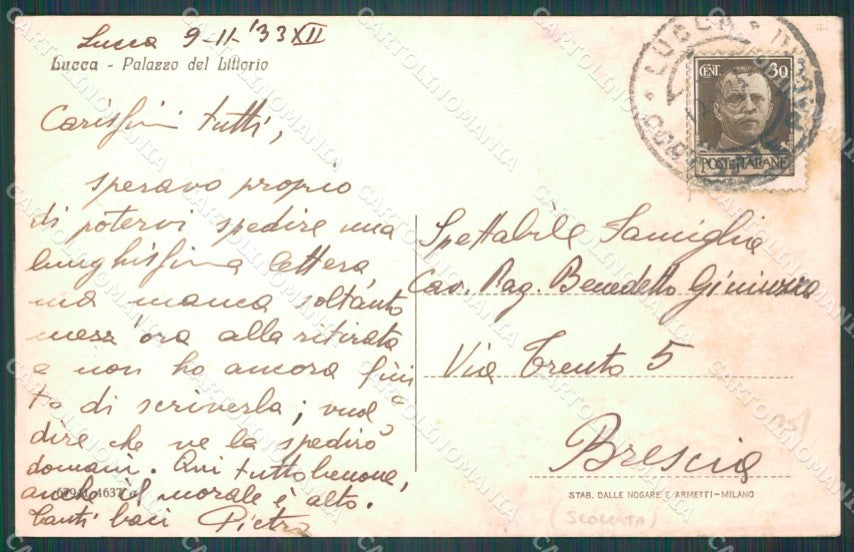 Lucca 9-11-'33 XII
Lucca - Palazzo del Littorio
Carissimi tutti,
speravo proprio
di potervi spedire una
lunghissima lettera
ma manca soltanto
mezz'ora alla ritirata
e non ho ancora fini
to di scriverla; vuol
dire che ve la spedirò
domani. Qui tutto benone,
anche il morale è alto.
Tanti baci Pietro
679/1 4637
LUCCA
CENT. 30
POSTE ITALIANE
Spettabile Famiglia
Cav. Rag. Benedetto
Via Trento 5
Brescia
STAB. DALLE NOGARE E ARMETTI - MILANO
(SCOLLATA)
CARTOLINOMANIA